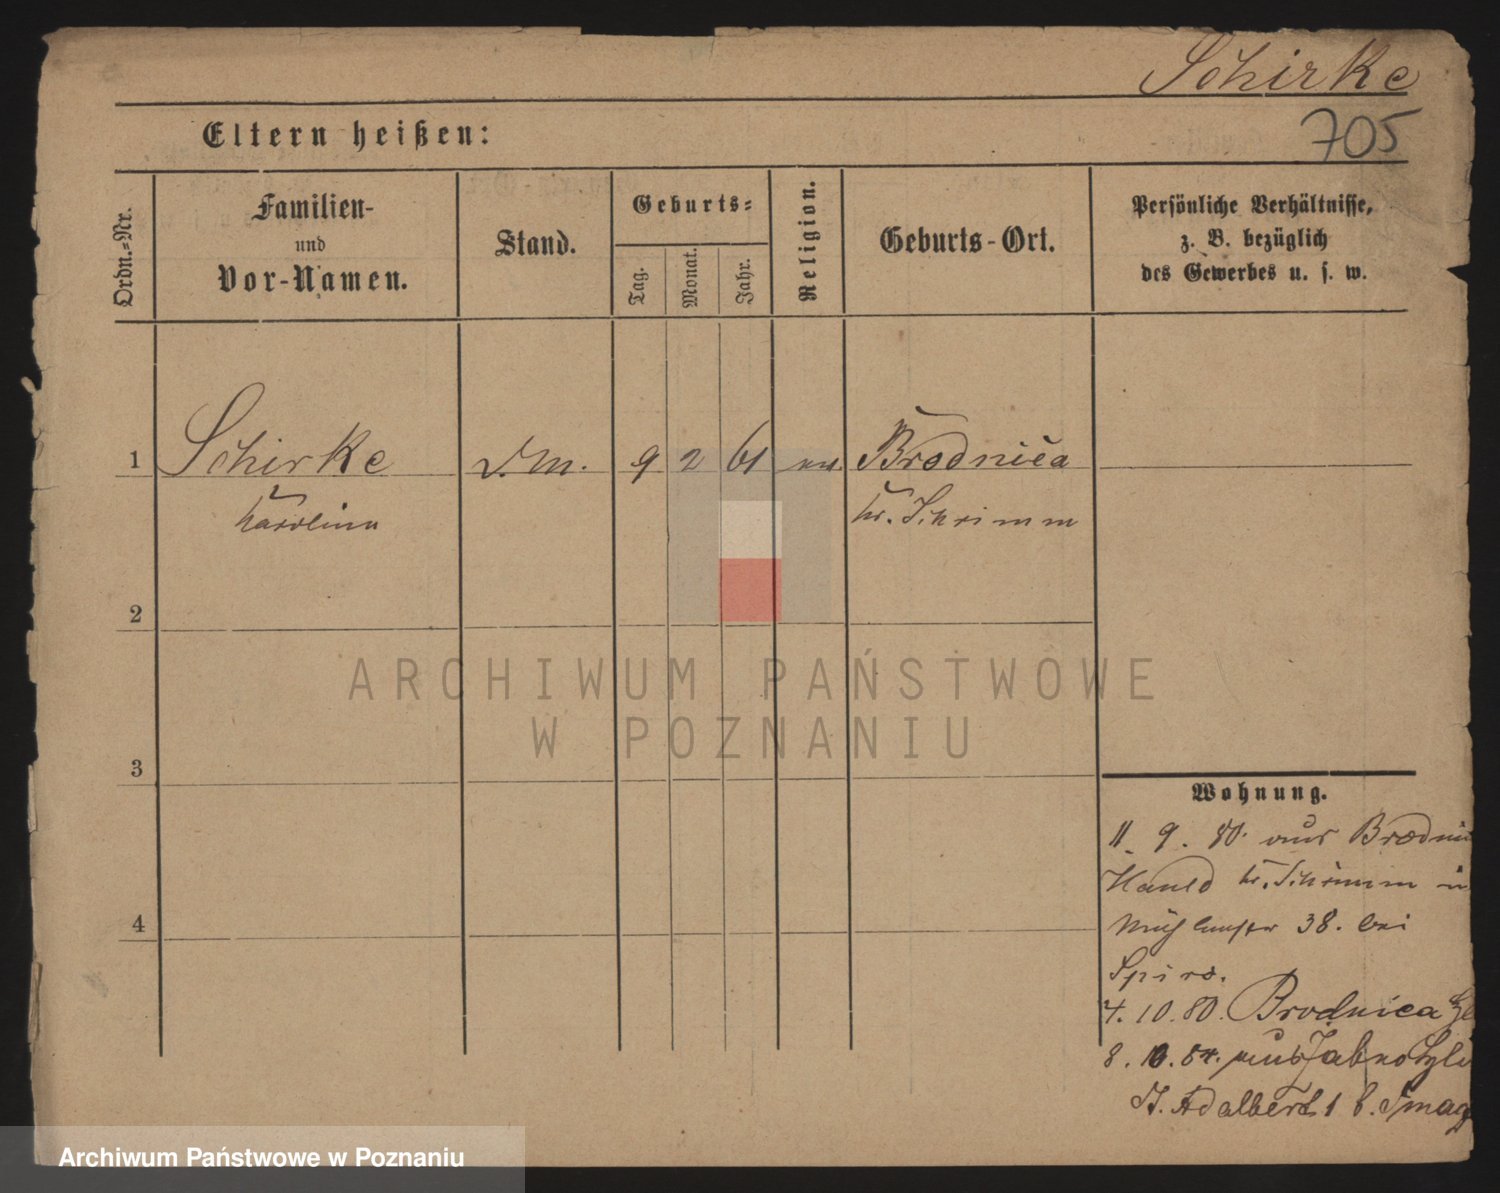 Schirke
705
Eltern heißen:
Ordn.-Nr.
Familien-
und
Vor-Namen.
Stand.
Geburts-
Tag.
Monat.
Jahr.
Religion.
Geburts-Ort.
Persönliche Verhältnisse,
z. B. bezüglich
des Gewerbes u. s. w.
1 Schirke D.M. 9 2 61 Brodnica
Karolina Kr. Schrimm
2
3
4
ARCHIWUM PAŃSTWOWE
W POZNANIU
Wohnung.
11. 9. 80. aus Brodni
Hauld Kr. Schrimm in
38. bei
Spiro.
4. 10. 80. Brodnica
8. 10. 84. aus
St. Adalbert 1 b.
Archiwum Państwowe w Poznaniu